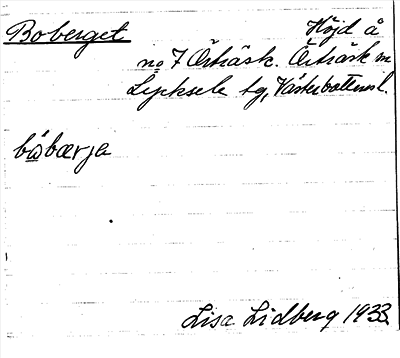 Boberget Höjd å
no 7 Örträsk. Örträsk sn
Lycksele tg, Västerbottensl.
båbærja
Lisa Lidberg 1933.